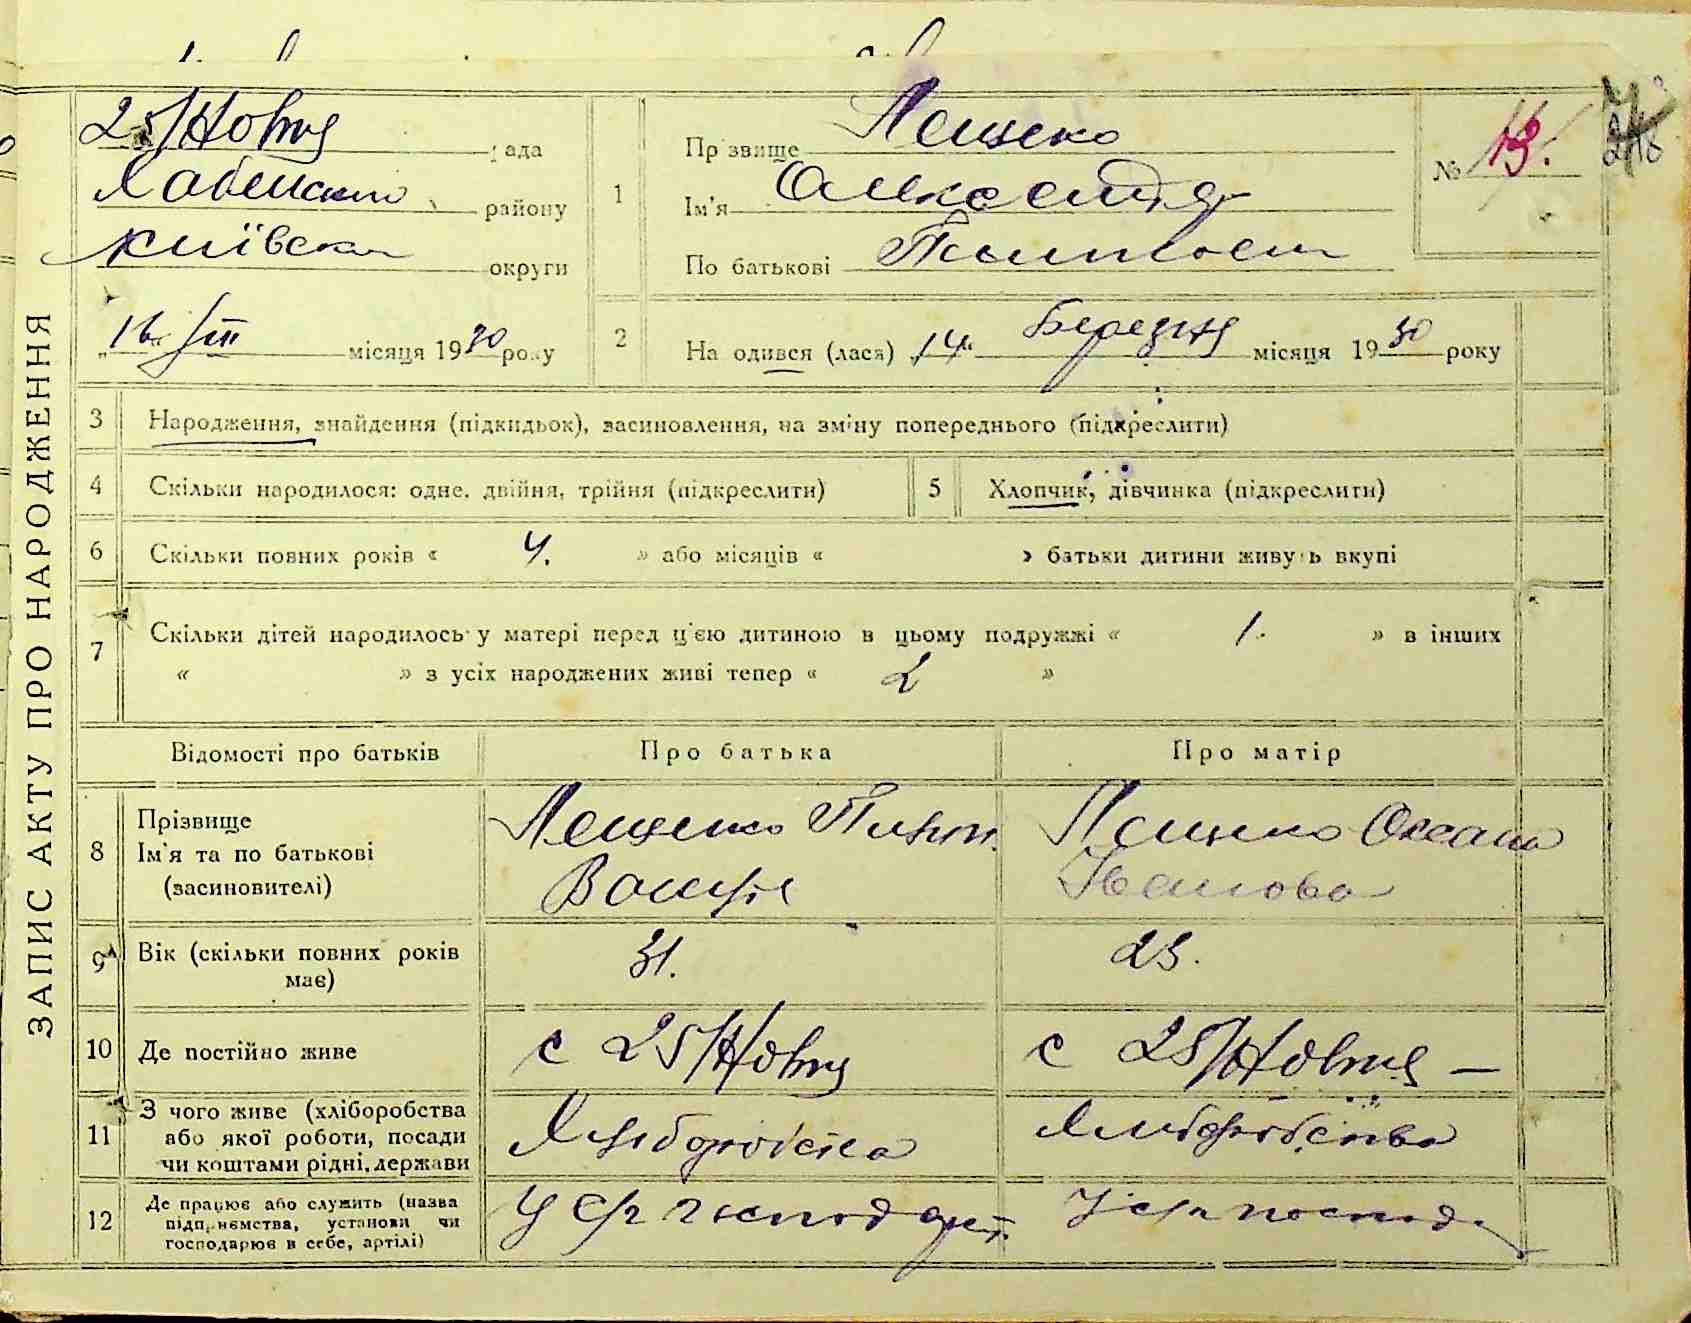 ЗАПИС АКТУ ПРО НАРОДЖЕННЯ
25/Ховтня рада
Хабенського району
Київська округи
„16“ /III місяця 1930 року
1
Прізвище Лещенко
Ім'я Олександр
По батькові
№ 13.
2
На одився (лася) „14“ Березня місяця 1930 року
3 Народження, знайдення (підкидьок), засиновлення, на зміну попереднього (підкреслити)
4 Скільки народилося: одне, двійня, трійня (підкреслити)
5 Хлопчик, дівчинка (підкреслити)
6 Скільки повних років « 4. » або місяців « » батьки дитини живуть вкупі
7 Скільки дітей народилось у матері перед цією дитиною в цьому подружжі « 1. » в інших
« » з усіх народжених живі тепер « 2 »
Відомості про батьків
Про батька
Про матір
8 Прізвище
Ім'я та по батькові
(засиновителі)
Лещенко
Лещенко Оксана
Іванова
9 Вік (скільки повних років має)
31.
23.
10 Де постійно живе
с 25/Жовтня
с 25/Жовтня —
11 З чого живе (хліборобства або якої роботи, посади чи коштами рідні, держави
Хліборобства
Хліборобства
12 Де працює або служить (назва підприємства, установи чи господарює в себе, артілі)
У с/г господарст.
У с/г господ